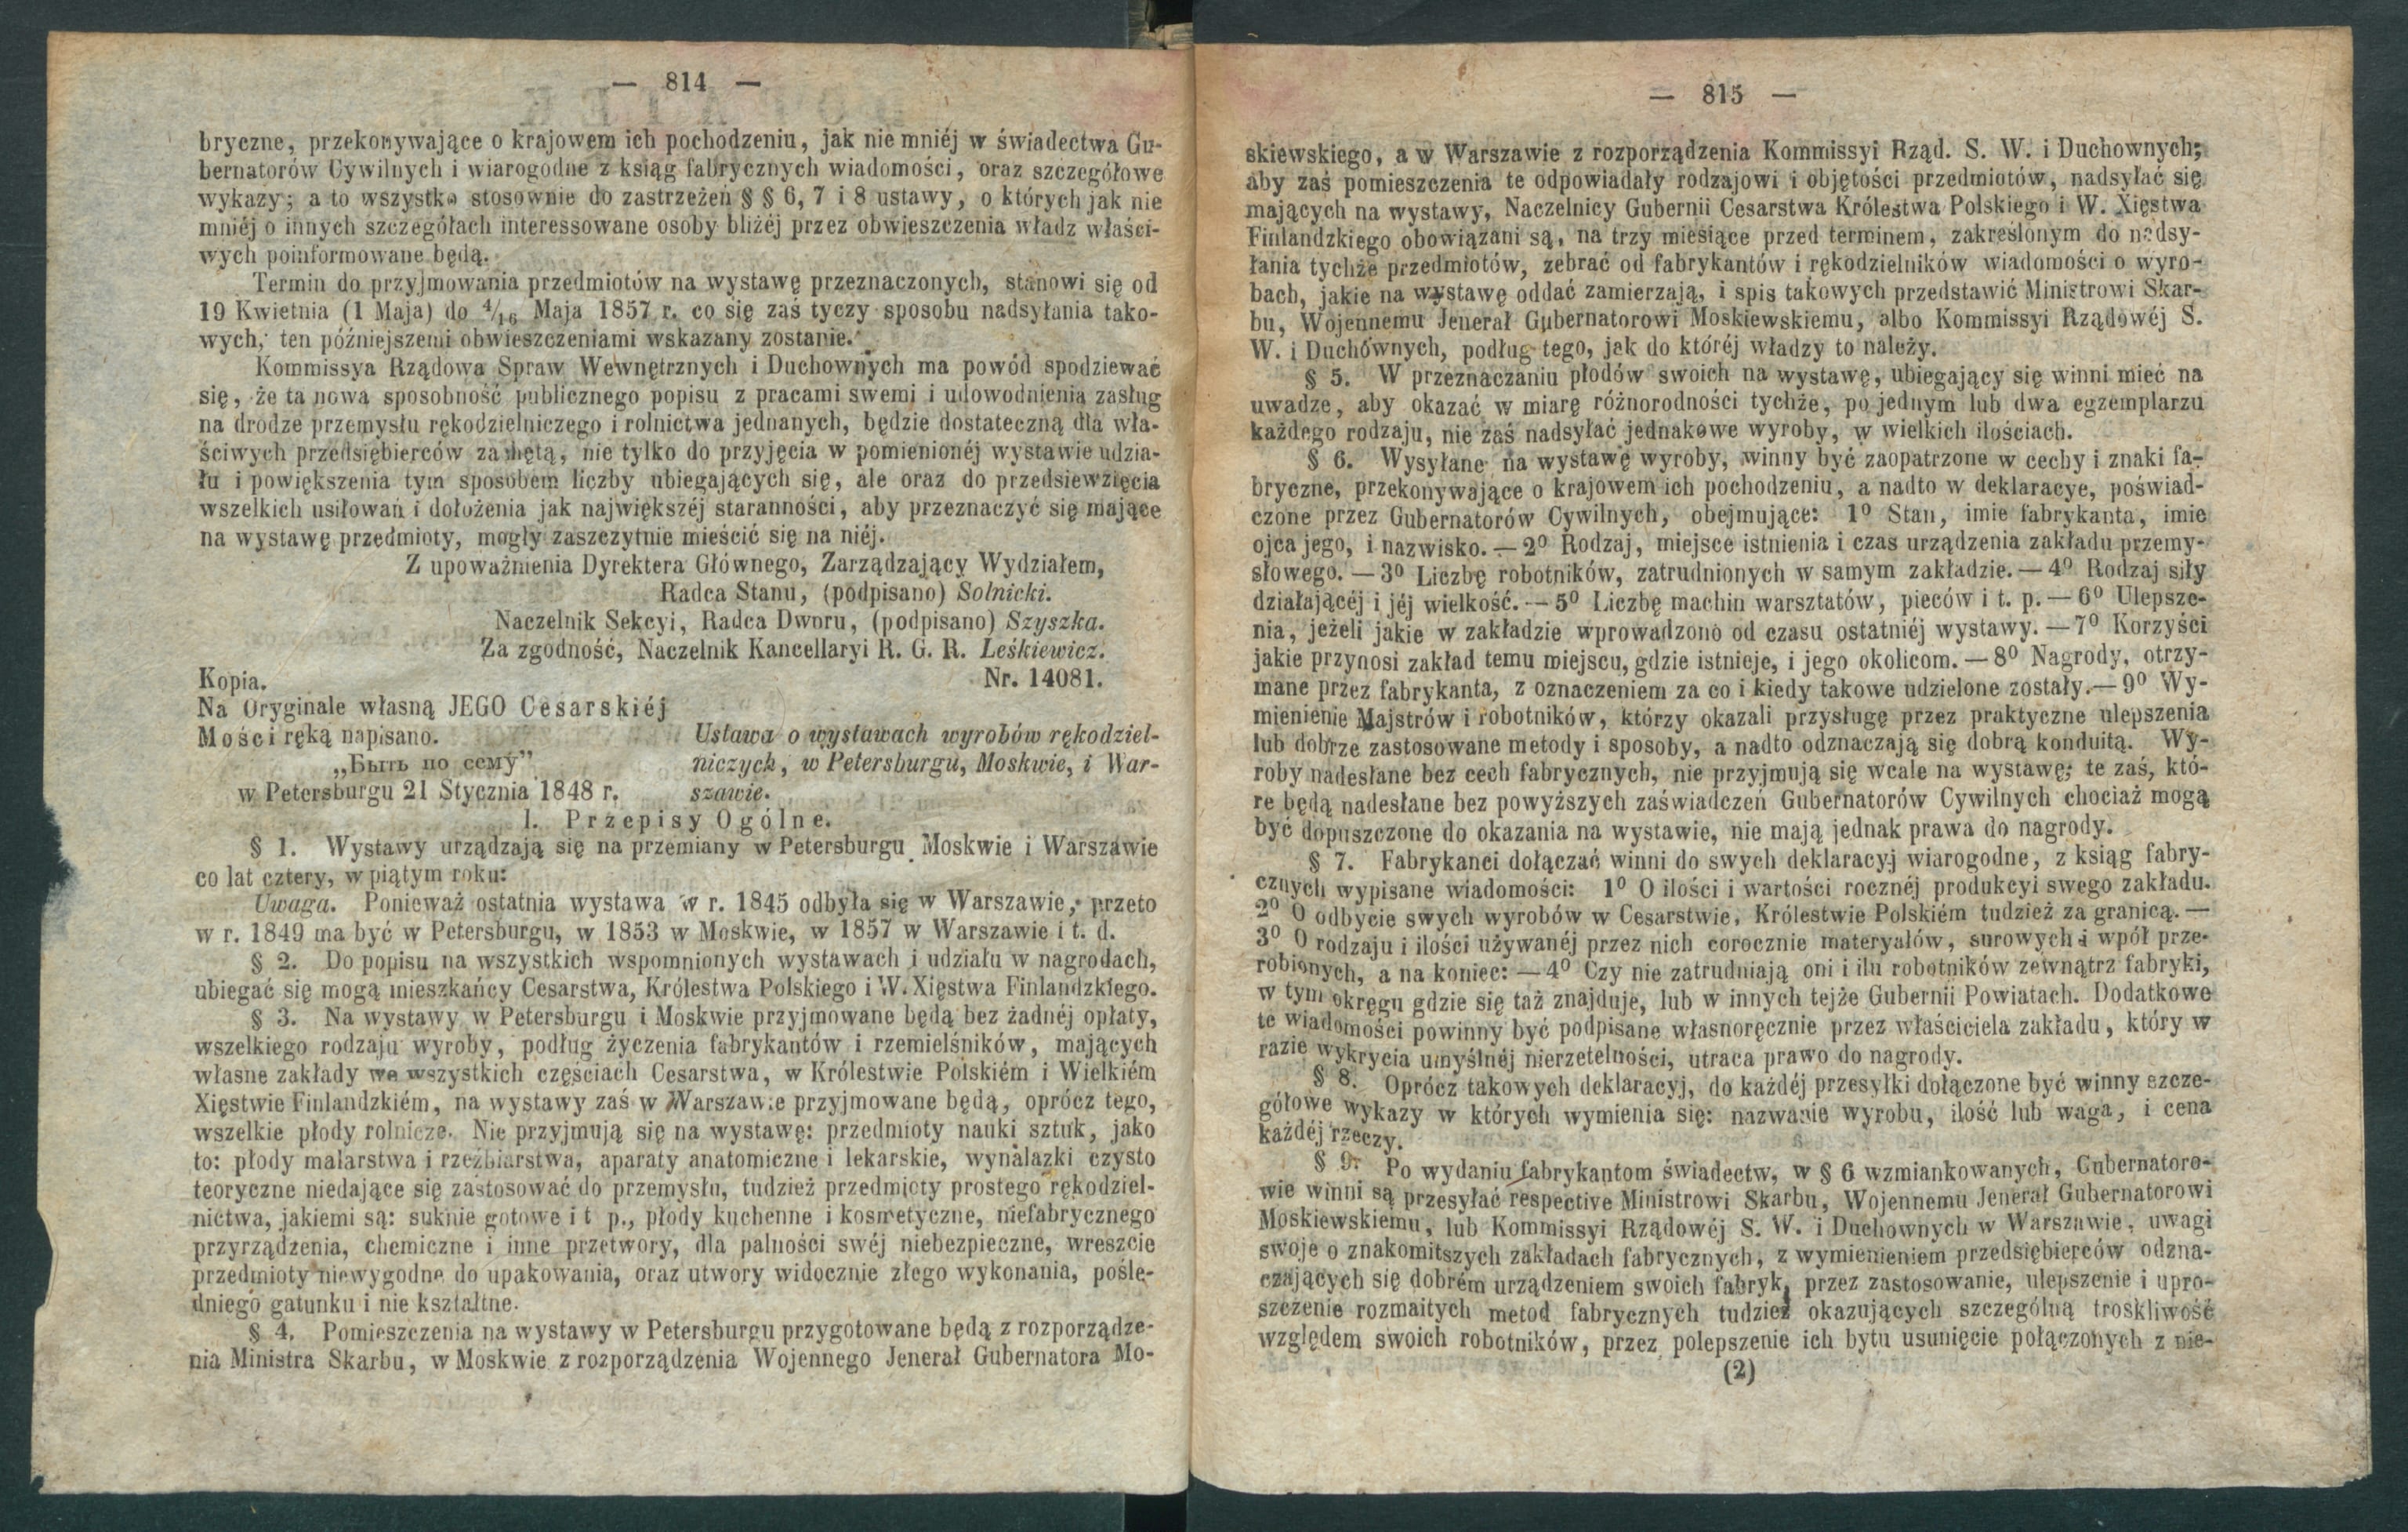 — 814 —
bryczne, przekonywające o krajowem ich pochodzeniu, jak nie mniéj w świadectwa Gu-
bernatorów Cywilnych i wiarogodne z ksiąg fabrycznych wiadomości, oraz szczegółowe
wykazy; a to wszystko stosownie do zastrzeżeń § § 6, 7 i 8 ustawy, o których jak nie
mniéj o innych szczegółach interessowane osoby bliżéj przez obwieszczenia władz właści-
wych poinformowane będą.
Termin do przyjmowania przedmiotów na wystawę przeznaczonych, stanowi się od
19 Kwietnia (1 Maja) do 4/16 Maja 1857 r. co się zaś tyczy sposobu nadsyłania tako-
wych, ten późniejszemi obwieszczeniami wskazany zostanie.
Kommissya Rządowa Spraw Wewnętrznych i Duchownych ma powód spodziewać
się, że ta nowa sposobność publicznego popisu z pracami swemi i udowodnienia zasług
na drodze przemysłu rękodzielniczego i rolnictwa jednanych, będzie dostateczną dla wła-
ściwych przedsiębierców zachętą, nie tylko do przyjęcia w pomienionéj wystawie udzia-
łu i powiększenia tym sposobem liczby ubiegających się, ale oraz do przedsiewzięcia
wszelkich usiłowań i dołożenia jak największéj staranności, aby przeznaczyć się mające
na wystawę przedmioty, mogły zaszczytnie mieścić się na niéj.
Z upoważnienia Dyrektera Głównego, Zarządzający Wydziałem,
Radca Stanu, (podpisano) Solnicki.
Naczelnik Sekcyi, Radca Dworu, (podpisano) Szyszka.
Za zgodność, Naczelnik Kancellaryi R. G. R. Leśkiewicz.
Kopia. Nr. 14081.
Na Oryginale własną JEGO Cesarskiéj
Mości ręką napisano.
„Быть по сему”
w Petersburgu 21 Stycznia 1848 r.
Ustawa o wystawach wyrobów rękodziel-
niczych, w Petersburgu, Moskwie, i War-
szawie.
I. Przepisy Ogólne.
§ 1. Wystawy urządzają się na przemiany w Petersburgu Moskwie i Warszawie
co lat cztery, w piątym roku:
Uwaga. Ponieważ ostatnia wystawa w r. 1845 odbyła się w Warszawie, przeto
w r. 1849 ma być w Petersburgu, w 1853 w Moskwie, w 1857 w Warszawie i t. d.
§ 2. Do popisu na wszystkich wspomnionych wystawach i udziału w nagrodach,
ubiegać się mogą mieszkańcy Cesarstwa, Królestwa Polskiego i W. Xięstwa Finlandzkiego.
§ 3. Na wystawy w Petersburgu i Moskwie przyjmowane będą bez żadnéj opłaty,
wszelkiego rodzaju wyroby, podług życzenia fabrykantów i rzemielśników, mających
własne zakłady we wszystkich częściach Cesarstwa, w Królestwie Polskiém i Wielkiém
Xięstwie Finlandzkiém, na wystawy zaś w Warszawie przyjmowane będą, oprócz tego,
wszelkie płody rolnicze. Nie przyjmują się na wystawę: przedmioty nauki sztuk, jako
to: płody malarstwa i rzeźbiarstwa, aparaty anatomiczne i lekarskie, wynalazki czysto
teoryczne niedające się zastosować do przemysłu, tudzież przedmioty prostego rękodziel-
nictwa, jakiemi są: suknie gotowe i t p., płody kuchenne i kosmetyczne, niefabrycznego
przyrządzenia, chemiczne i inne przetwory, dla palności swéj niebezpieczne, wreszcie
przedmioty niewygodne do upakowania, oraz utwory widocznie złego wykonania, pośle-
dniego gatunku i nie kształtne.
§ 4. Pomieszczenia na wystawy w Petersburgu przygotowane będą z rozporządze-
nia Ministra Skarbu, w Moskwie z rozporządzenia Wojennego Jenerał Gubernatora Mo-
— 815 —
skiewskiego, a w Warszawie z rozporządzenia Kommissyi Rząd. S. W. i Duchownych;
aby zaś pomieszczenia te odpowiadały rodzajowi i objętości przedmiotów, nadsyłać się
mających na wystawy, Naczelnicy Gubernii Cesarstwa Królestwa Polskiego i W. Xięstwa
Finlandzkiego obowiązani są, na trzy miesiące przed terminem, zakreślonym do nadsy-
łania tychże przedmiotów, zebrać od fabrykantów i rękodzielników wiadomości o wyro-
bach, jakie na wystawę oddać zamierzają, i spis takowych przedstawić Ministrowi Skar-
bu, Wojennemu Jenerał Gubernatorowi Moskiewskiemu, albo Kommissyi Rządowéj S.
W. i Duchownych, podług tego, jak do któréj władzy to należy.
§ 5. W przeznaczaniu płodów swoich na wystawę, ubiegający się winni mieć na
uwadze, aby okazać w miarę różnorodności tychże, po jednym lub dwa egzemplarzu
każdego rodzaju, nie zaś nadsyłać jednakowe wyroby, w wielkich ilościach.
§ 6. Wysyłane na wystawę wyroby, winny być zaopatrzone w cechy i znaki fa-
bryczne, przekonywające o krajowem ich pochodzeniu, a nadto w deklaracye, poświad-
czone przez Gubernatorów Cywilnych, obejmujące: 1⁰ Stan, imie fabrykanta, imie
ojca jego, i nazwisko. — 2⁰ Rodzaj, miejsce istnienia i czas urządzenia zakładu przemy-
słowego. — 3⁰ Liczbę robotników, zatrudnionych w samym zakładzie. — 4⁰ Rodzaj siły
działającéj i jéj wielkość. — 5⁰ Liczbę machin warsztatów, pieców i t. p. — 6⁰ Ulepsze-
nia, jeżeli jakie w zakładzie wprowadzono od czasu ostatniéj wystawy. — 7⁰ Korzyści
jakie przynosi zakład temu miejscu, gdzie istnieje, i jego okolicom. — 8⁰ Nagrody, otrzy-
mane przez fabrykanta, z oznaczeniem za co i kiedy takowe udzielone zostały. — 9⁰ Wy-
mienienie Majstrów i robotników, którzy okazali przysługę przez praktyczne ulepszenia
lub dobrze zastosowane metody i sposoby, a nadto odznaczają się dobrą konduitą. Wy-
roby nadesłane bez cech fabrycznych, nie przyjmują się wcale na wystawę; te zaś, któ-
re będą nadesłane bez powyższych zaświadczeń Gubernatorów Cywilnych chociaż mogą
być dopuszczone do okazania na wystawie, nie mają jednak prawa do nagrody.
§ 7. Fabrykanci dołączać winni do swych deklaracyj wiarogodne, z ksiąg fabry-
cznych wypisane wiadomości: 1⁰ O ilości i wartości rocznéj produkcyi swego zakładu.
2⁰ O odbycie swych wyrobów w Cesarstwie, Królestwie Polskiém tudzież za granicą. —
3⁰ O rodzaju i ilości używanéj przez nich corocznie materyałów, surowych i wpół prze-
robionych, a na koniec: — 4⁰ Czy nie zatrudniają oni i ilu robotników zewnątrz fabryki,
w tym okręgu gdzie się taż znajduje, lub w innych tejże Gubernii Powiatach. Dodatkowe
te wiadomości powinny być podpisane własnoręcznie przez właściciela zakładu, który w
razie wykrycia umyślnéj nierzetelności, utraca prawo do nagrody.
§ 8. Oprócz takowych deklaracyj, do każdéj przesyłki dołączone być winny szcze-
gółowe wykazy w których wymienia się: nazwanie wyrobu, ilość lub waga, i cena
każdéj rzeczy.
§ 9. Po wydaniu fabrykantom świadectw, w § 6 wzmiankowanych, Gubernatoro-
wie winni są przesyłać respective Ministrowi Skarbu, Wojennemu Jenerał Gubernatorowi
Moskiewskiemu, lub Kommissyi Rządowéj S. W. i Duchownych w Warszawie, uwagi
swoje o znakomitszych zakładach fabrycznych, z wymienieniem przedsiębierców odzna-
czających się dobrém urządzeniem swoich fabryk, przez zastosowanie, ulepszenie i upro-
szczenie rozmaitych metod fabrycznych tudzież okazujących szczególną troskliwość
względem swoich robotników, przez polepszenie ich bytu usunięcie połączonych z nie-
(2)